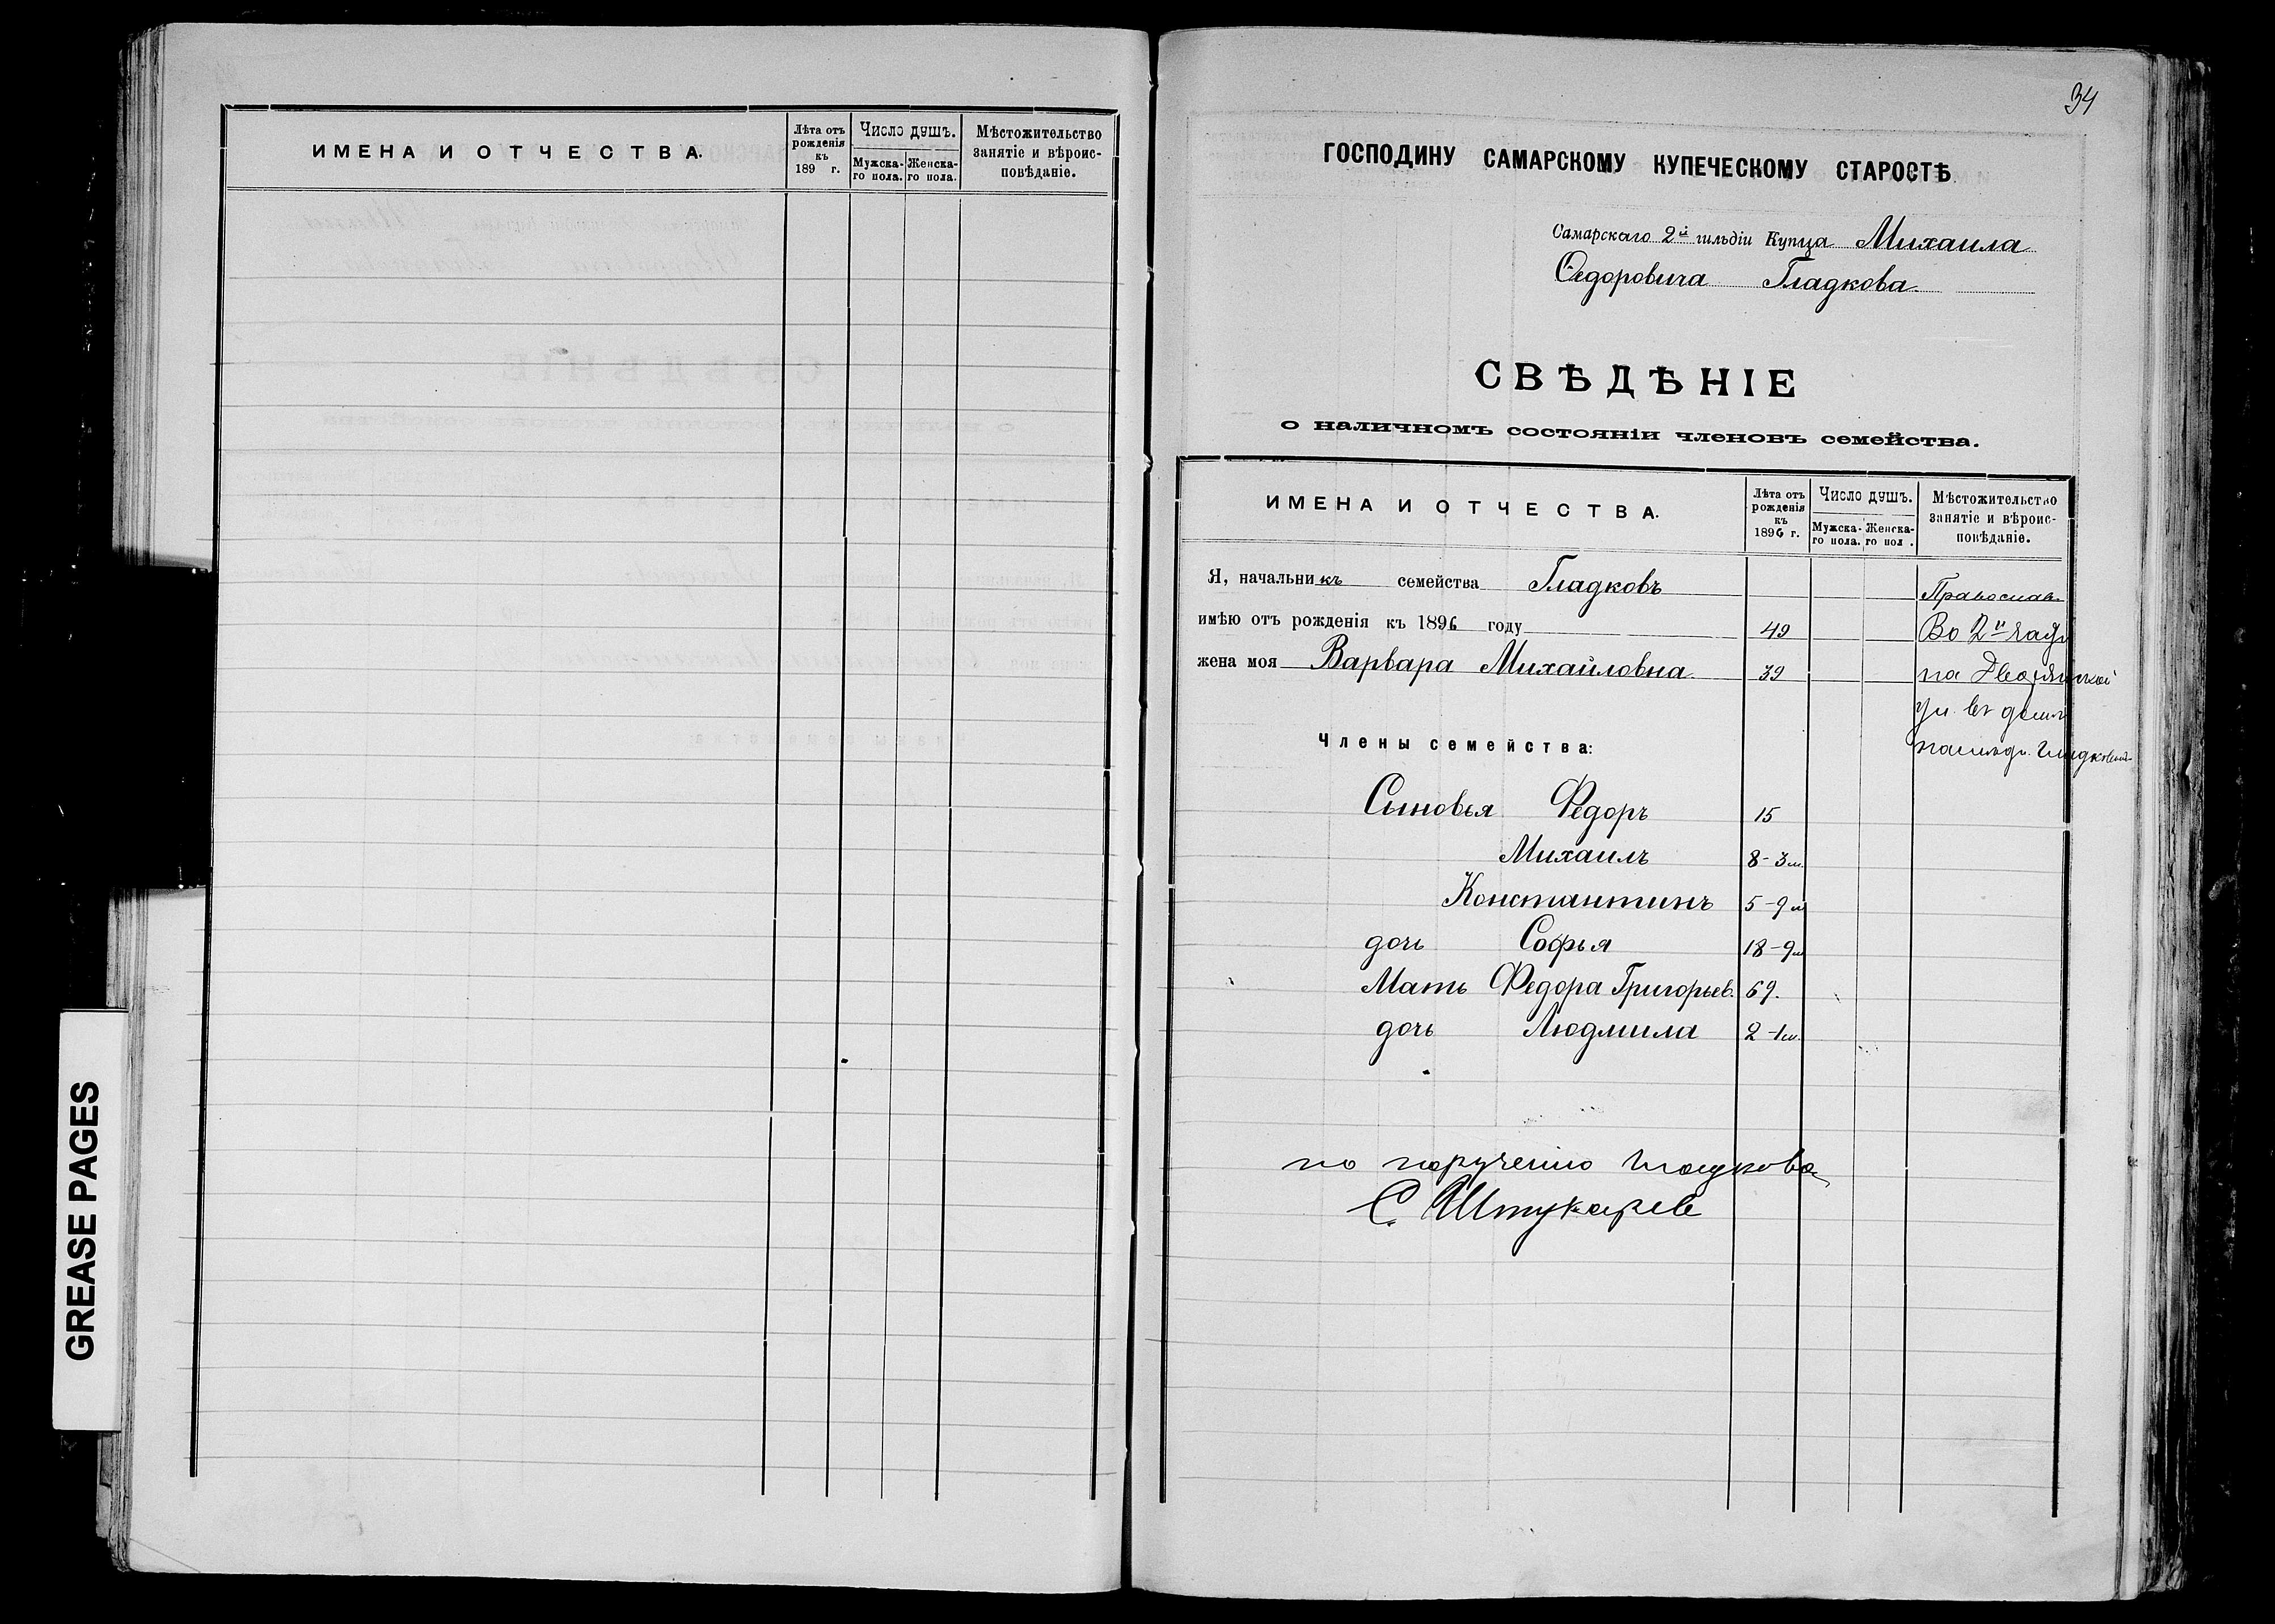 ИМЕНА И ОТЧЕСТВА.
Лѣта отъ рожденія къ 189 г.
Число душъ.
Мужска-го пола. Женска-го пола.
Мѣстожительство занятіе и вѣроис-повѣданіе.
GREASE PAGES
34
ГОСПОДИНУ САМАРСКОМУ КУПЕЧЕСКОМУ СТАРОСТѢ
Самарскаго 2й гильдіи Купца Михаила
Ѳедоровича Гладкова
СВѢДѢНІЕ
о наличномъ состояніи членовъ семейства.
ИМЕНА И ОТЧЕСТВА.
Лѣта отъ рожденія къ 1896 г.
Число душъ.
Мужска-го пола. Женска-го пол .
Мѣстожительство занятіе и вѣроис-повѣданіе.
Я, начальникъ семейства Гладковъ Православ.
имѣю отъ рожденія къ 1896 году 49 Во 2й части
жена моя Варвара Михайловна 39 на Дворянской
ул. въ домѣ
Члены семейства: наслѣд. Гладковыхъ
Сыновья Федоръ 15
Михаилъ 8-3м.
Константинъ 5-9м
дочь Софья 18-9м
Мать Федора Григорьев. 69.
дочь Людмила 2-1м.
по порученію Гладкова
С. Штукарев